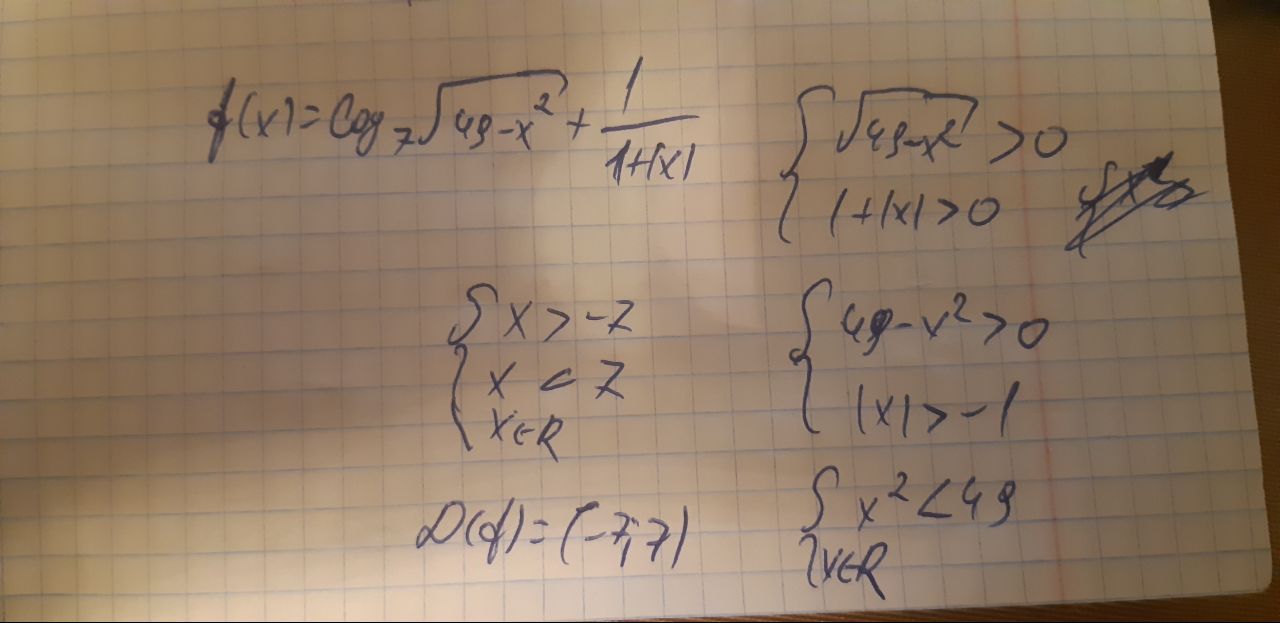 f(x)=log₇√(49-x²) + 1/(1+|x|)
{ √(49-x²) > 0
1+|x|>0
{ 49-x²>0
|x|>-1
{ x²<49
x∈R
{ x>-7
x<7
x∈R
D(f)=(-7;7)